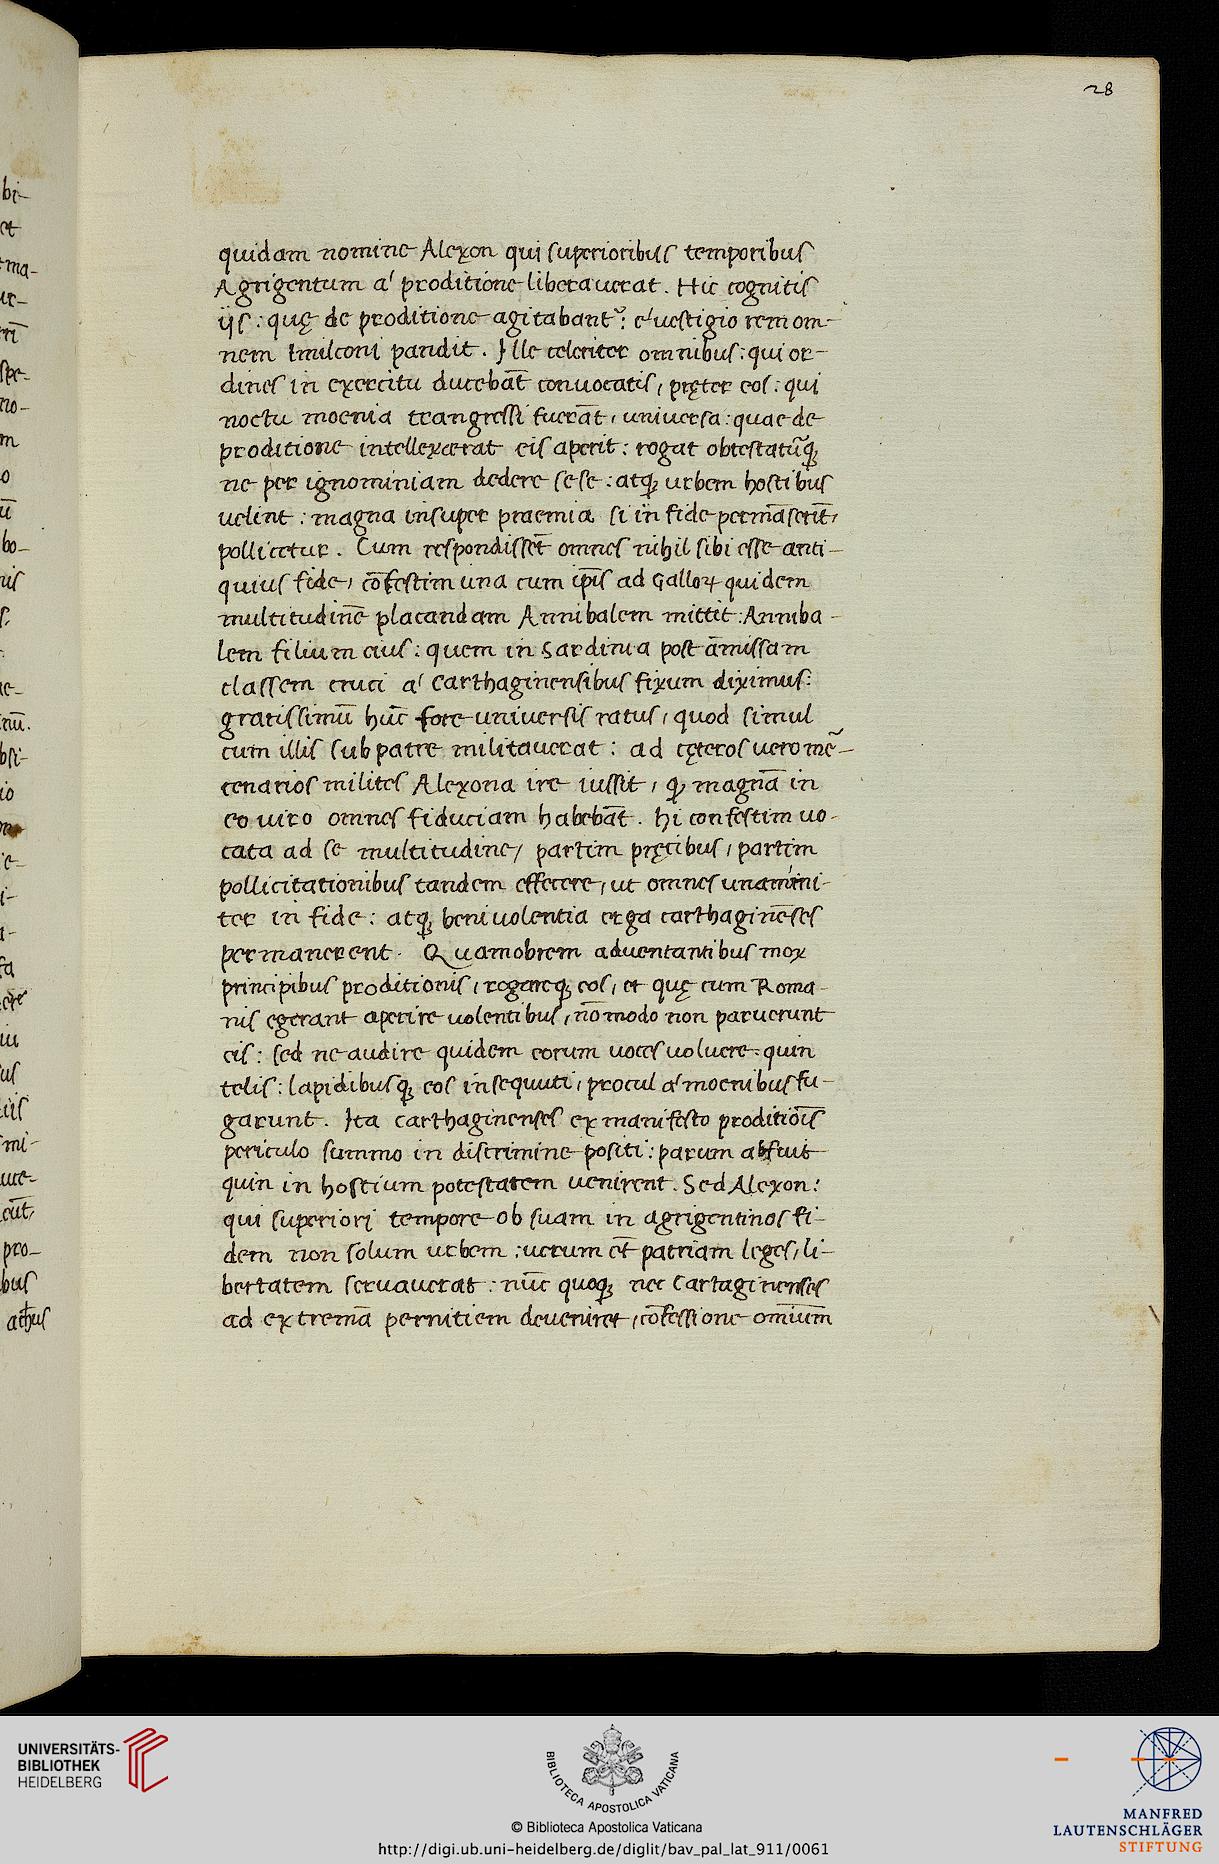 28
quidam nomine Alexon qui superioribus temporibus
Agrigentum a' proditione liberauerat. Hic cognitis
ijs: quę de proditione agitabant᷑: e' uestigio rem om-
nem Imilconi pandit. Ille celeriter omnibus: qui or-
dines in exercitu ducebāt conuocatis, pręter eos: qui
noctu moenia trangressi fuerāt, uniuersa: quae de
proditione intellexerat eis aperit: rogat obtestatūꝗ
ne per ignominiam dedere sese: atꝗ urbem hostibus
uelint: magna insuper praemia si in fide permāserīt,
pollicetur. Cum respondisset̄ omnes nihil sibi esse anti-
quius fide, cōfestim una cum ip̄is ad Galloꝝ quidem
multitudinē placandam Annibalem mittit: Anniba-
lem filium eius: quem in Sardinia post āmissam
classem cruci a' Carthaginensibus fixum diximus:
gratissimū hūc fore uniuersis ratus, quod simul
cum illis sub patre militauerat: ad cęteros uero mē-
cenarios milites Alexona ire iussit, ꝙ magnā in
eo uiro omnes fiduciam habebāt. Hi confestim uo-
cata ad se multitudine, partim pręcibus, partim
pollicitationibus tandem effecere, ut omnes unamini-
ter in fide: atꝗ beniuolentia erga carthaginēses
permanerent. Quamobrem aduentantibus mox
principibus proditionis, rogareꝗ eos, et quę cum Roma-
nis egerant aperire uolentibus, nōmodo non paruerunt
eis: sed ne audire quidem eorum uoces uoluere: quin
telis: lapidibusꝗ eos insequuti, procul a' moenibus fu-
garunt. Ita Carthaginenses ex manifesto proditiōis
periculo summo in discrimine positi: parum abfuit
quin in hostium potestatem uenirent. Sed Alexon:
qui superiori tempore ob suam in agrigentinos fi-
dem non solum urbem: uerum et̄ patriam leges, li-
bertatem seruauerat: nūc quoꝗ nec Cartaginenses
ad extremā pernitiem deueniret, cōfessione omīum
bi-
et
bo-
nis
pro-
bus
UNIVERSITÄTS-
BIBLIOTHEK
HEIDELBERG
BIBLIOTECA APOSTOLICA VATICANA
© Biblioteca Apostolica Vaticana
http://digi.ub.uni-heidelberg.de/diglit/bav_pal_lat_911/0061
MANFRED
LAUTENSCHLÄGER
STIFTUNG